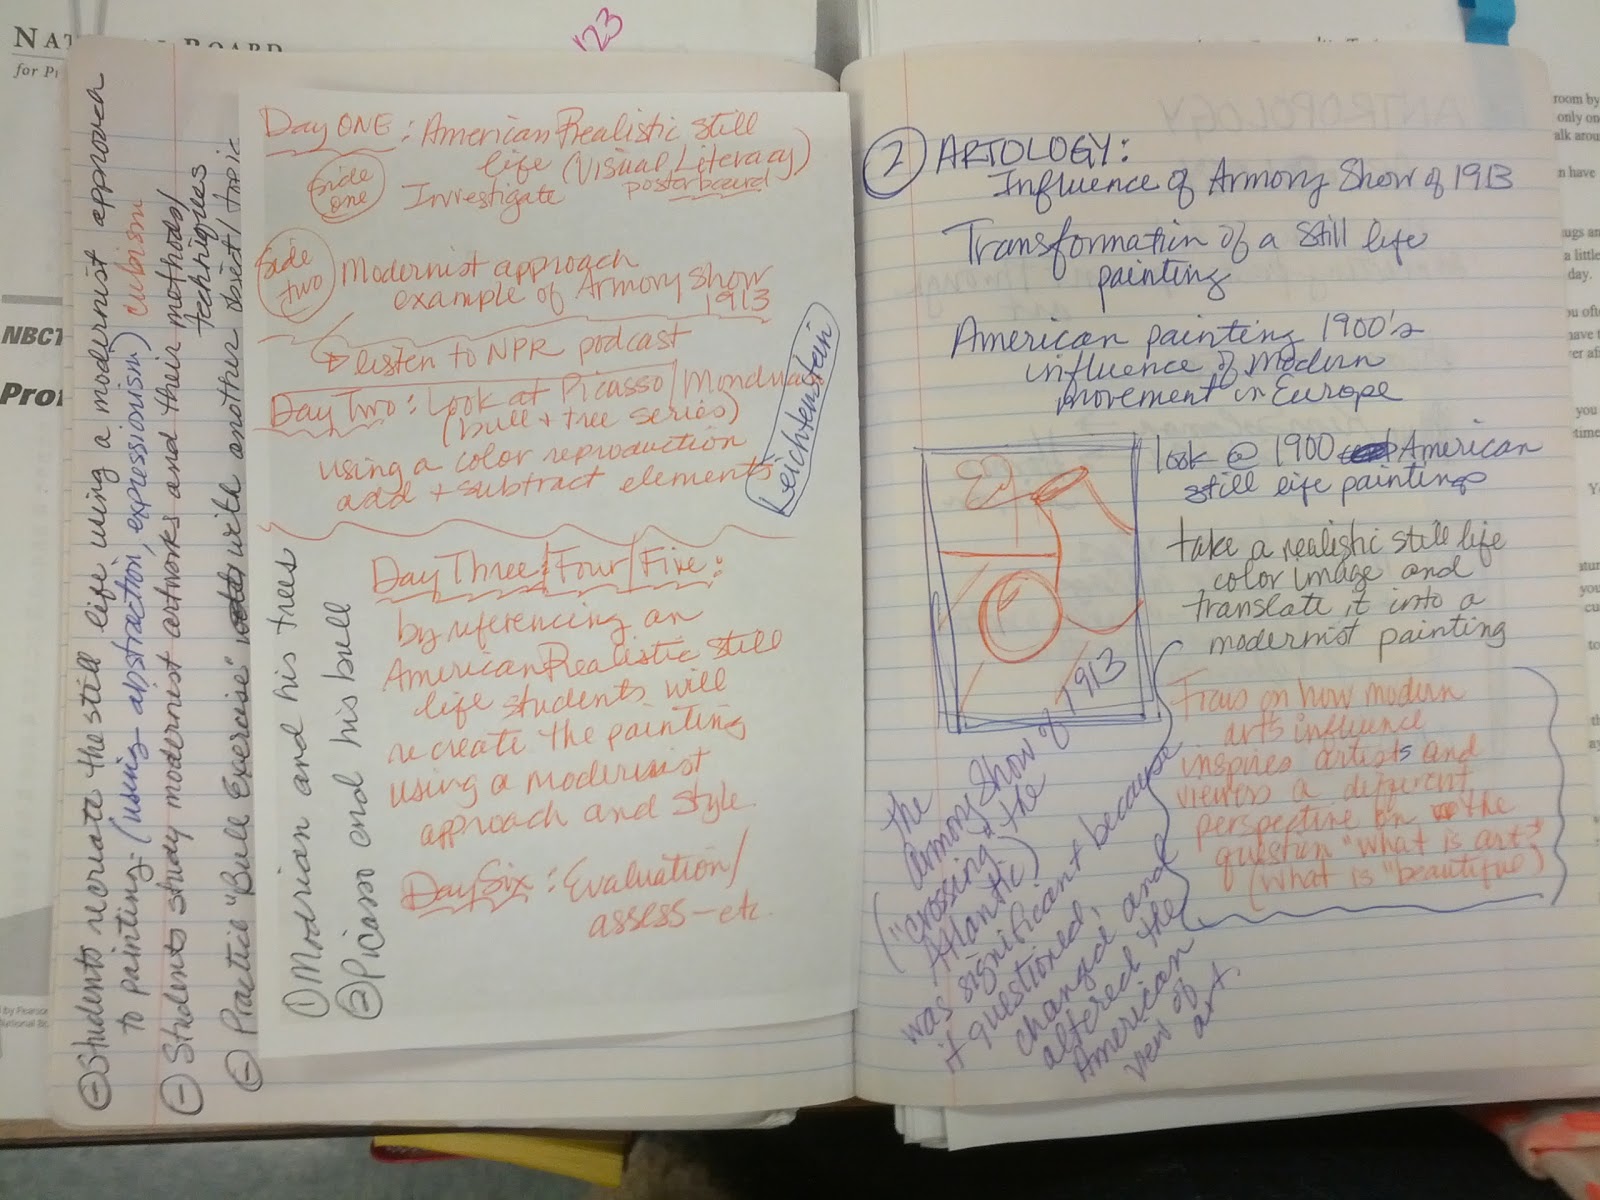 NATIONAL BOARD
for Pr
123
NBCT
Prof
by Pearson
National Boa
⊖ Students recreate the still life using a modernist approach
to painting (using abstraction, expressionism) cubism
⊖ Students study modernist artworks and their methods/
techniques
⊖ Practice "Bull Exercise" with another object/topic
Day ONE: American Realistic Still
life (Visual Literacy)
Side one
Investigate posterboard
Side two
Modernist approach
example of Armory Show
1913
→ listen to NPR podcast
Day Two: Look at Picasso/Mondrian
(bull + tree series)
using a color reproduction
add + subtract elements
Leichtenstein
① Modrian and his trees
② Picasso and his bull
Day Three/Four/Five:
by referencing an
American Realistic Still
life students will
recreate the painting
using a modernist
approach and style.
Day Six: Evaluation/
assess-etc.
② ARTOLOGY:
Influence of Armory Show of 1913
Transformation of a still life
painting
American painting 1900's
influence of Modern
movement in Europe
look @ 1900 American
still life paintings
take a realistic still life
color image and
translate it into a
modernist painting
Focus on how modern
arts influence
inspires artists and
viewers a different
perspective on the
question "what is art?"
(what is "beautiful")
the
Armory Show of 1913
("crossing the
Atlantic)
was significant because
it questioned,
changed and
altered the
American
view of
art.
room by
only on
alk arou
n have
ugs an
a little
day.
you
time